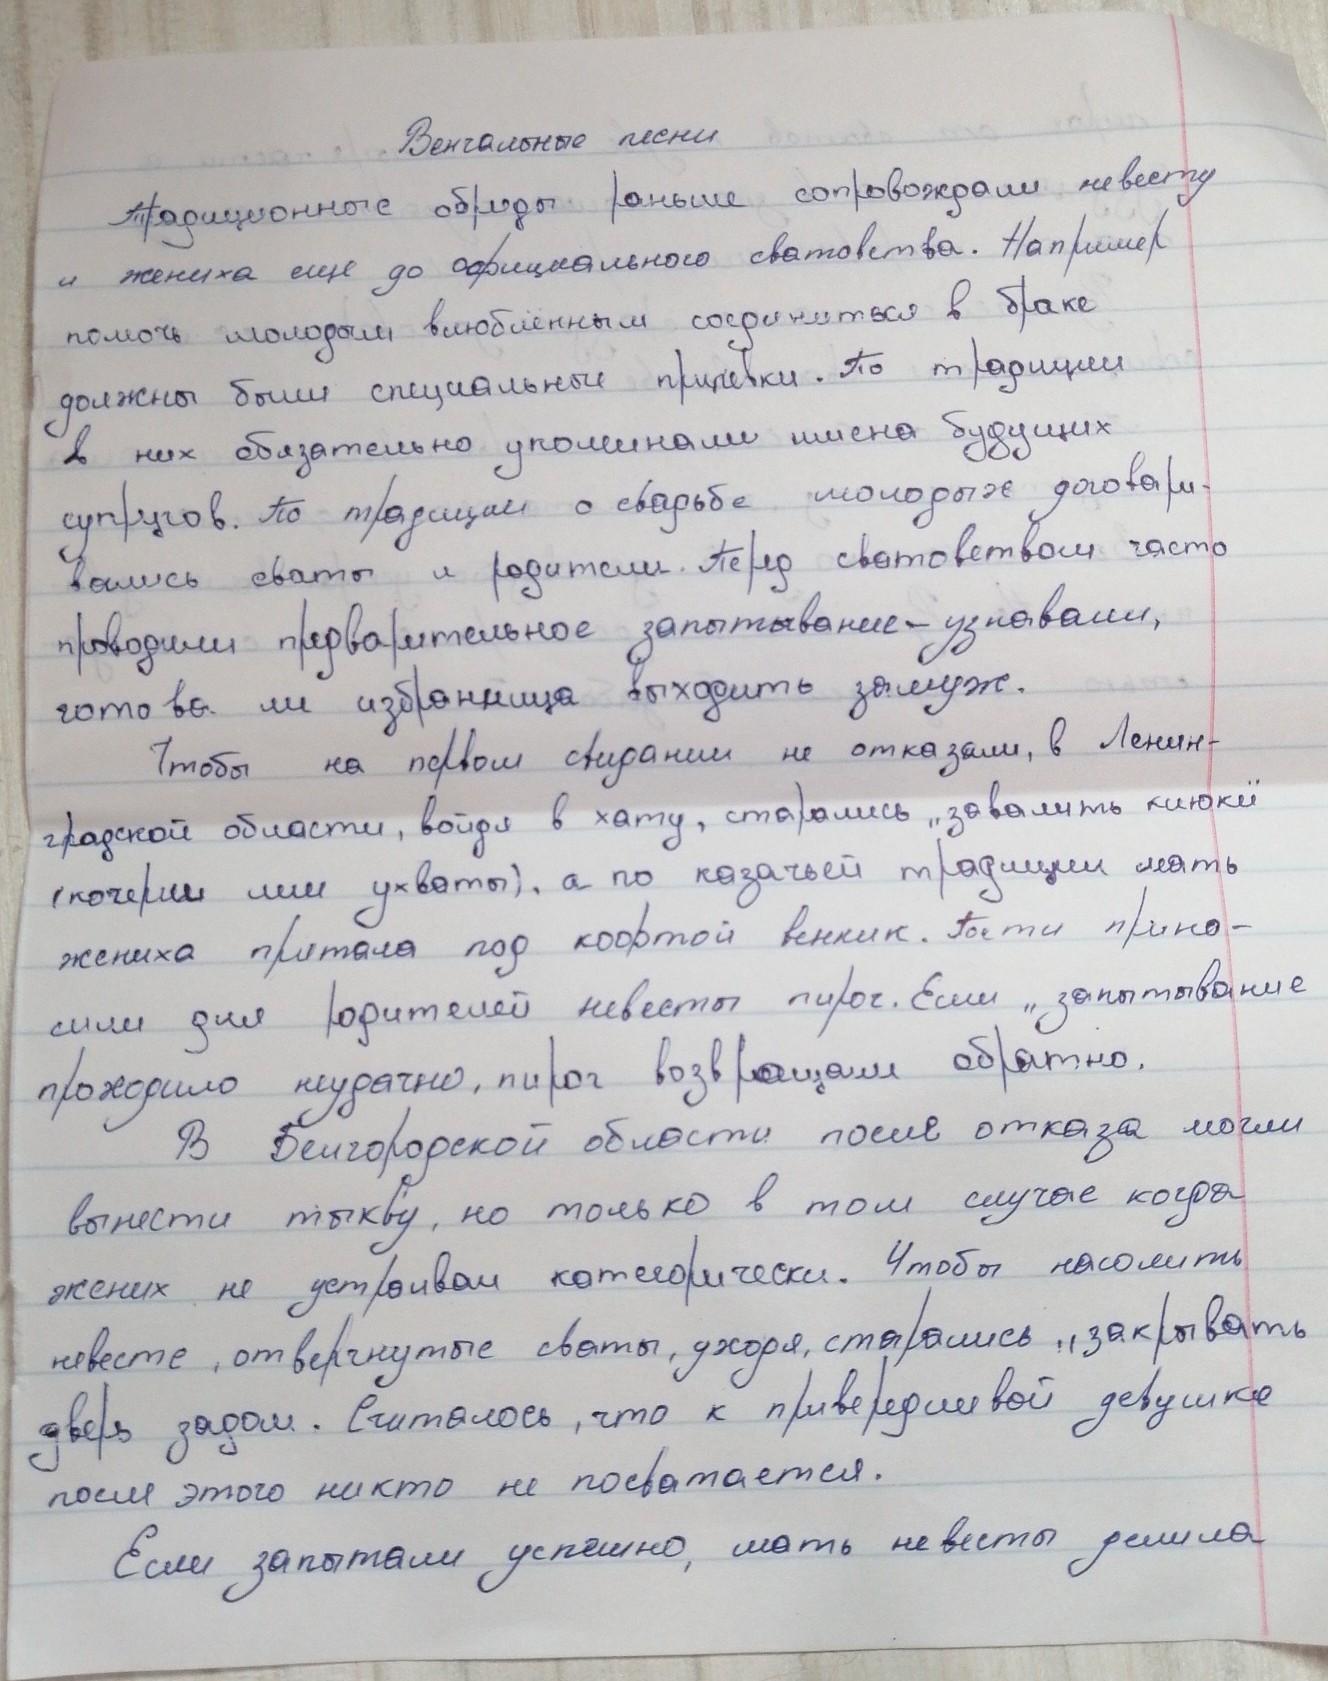 Венчальные песни
Традиционные обряды раньше сопровождали невесту
и жениха еще до официального сватовства. Например
помочь молодым влюбленным соединиться в браке
должны были специальные припевки. По традиции
в них обязательно упоминали имена будущих
супругов. По традиции о свадьбе молодых договари-
вались сваты и родители. Перед сватовством часто
проводили предварительное запытывание – узнавали,
готова ли избранница выходить замуж.
Чтобы на первом свидании не отказали, в Ленин-
градской области, войдя в хату, старались „завалить клюки"
(кочерги или ухваты), а по казачьей традиции мать
жениха прятала под кофтой веник. Гости прино-
сили для родителей невесты пирог. Если „запытывание
проходило неудачно, пирог возвращали обратно.
В Белгородской области после отказа могли
вынести тыкву, но только в том случае когда
жених не устраивал категорически. Чтобы насолить
невесте, отвергнутые сваты, уходя, старались „закрывать
дверь задом. Считалось, что к привередливой девушке
после этого никто не посватается.
Если запытали успешно, мать невесты делила